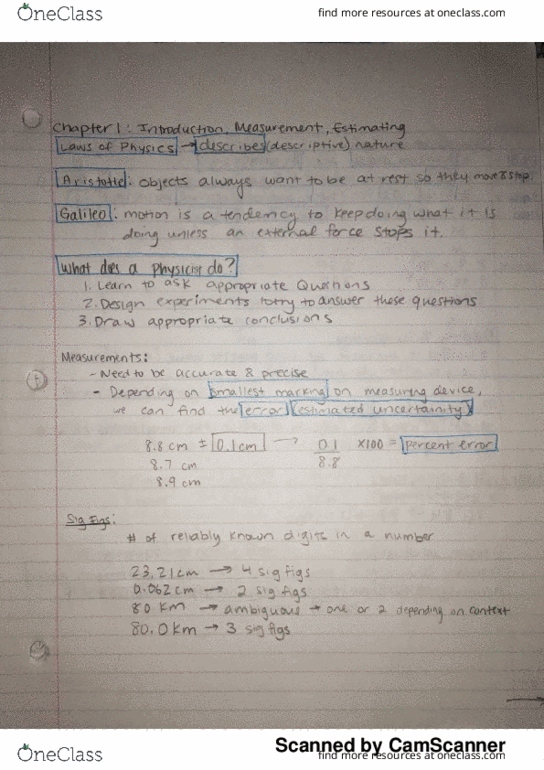 OneClass
find more resources at oneclass.com
Chapter 1: Introduction, Measurement, Estimating
Laws of Physics → describes (descriptive) nature
Aristotle: objects always want to be at rest so they move & stop.
Galileo: motion is a tendency to keep doing what it is
doing unless an external force stops it.
What does a physicist do?
1. Learn to ask appropriate Questions
2. Design experiments to try to answer these questions
3. Draw appropriate conclusions
Measurements:
- Need to be accurate & precise
- Depending on smallest marking on measuring device,
we can find the error (estimated uncertainity)
8.8 cm ± 0.1cm → 0.1 / 8.8 x100 = percent error
8.7 cm
8.9 cm
Sig Figs:
# of reliably known digits in a number
23.21cm → 4 sig figs
0.062cm → 2 sig figs
80 km → ambiguous → one or 2 depending on context
80.0km → 3 sig figs
Scanned by CamScanner
OneClass
find more resources at oneclass.com